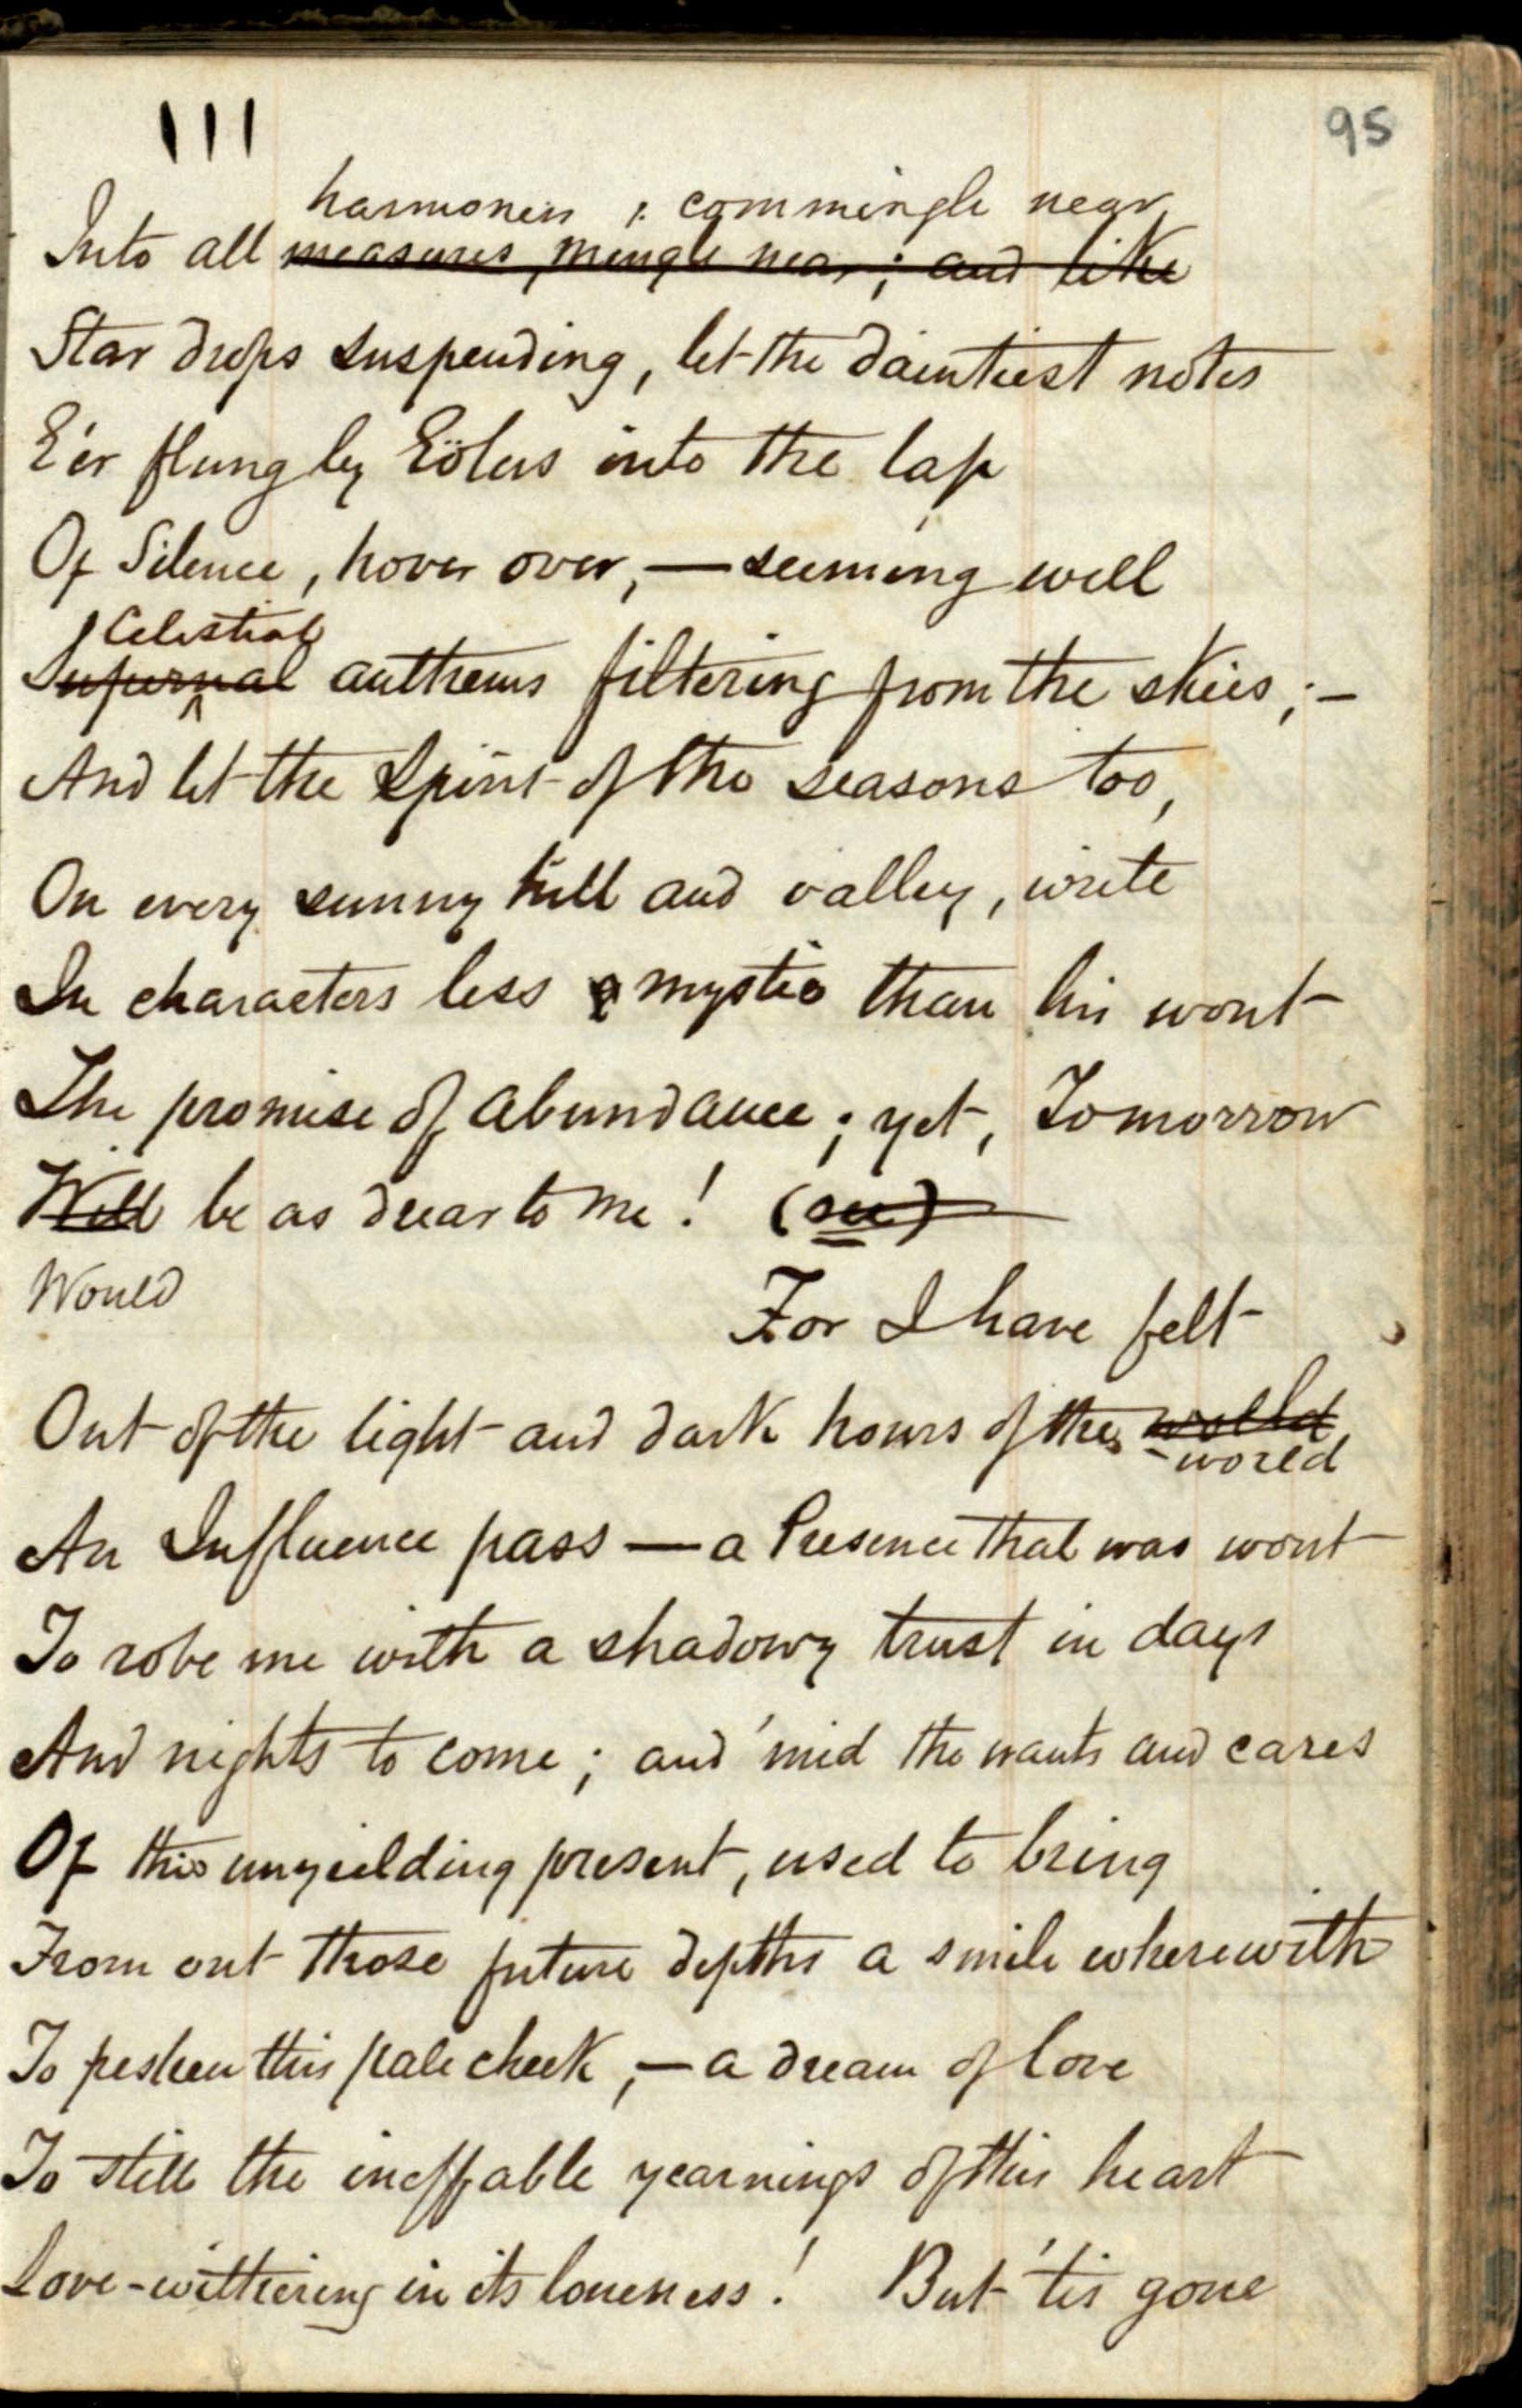 111
95
harmonies ; commingle near,
Into all measures, mingle near; and like
Star drops suspending, let the daintiest notes
E'er flung by Eölus into the lap
Of Silence, hover over, — seeming well
Celestial
Supernal anthems filtering from the skies ; –
And let the Spirit of the seasons too,
On every sunny hill and valley, write
In characters less mystic than his wont
The promise of abundance ; yet, Tomorrow
Will be as drear to me ! (over)
Would
For I have felt
Out of the light and dark hours of the world
world
An Influence pass — a Presence that was wont
To robe me with a shadowy trust in days
And nights to come ; and 'mid the wants and cares
Of this unyielding present, used to bring
From out those future depths a smile wherewith
To freshen this pale cheek, — a dream of love
To still the ineffable yearnings of this heart
Love-withering in its loneness ! But 'tis gone